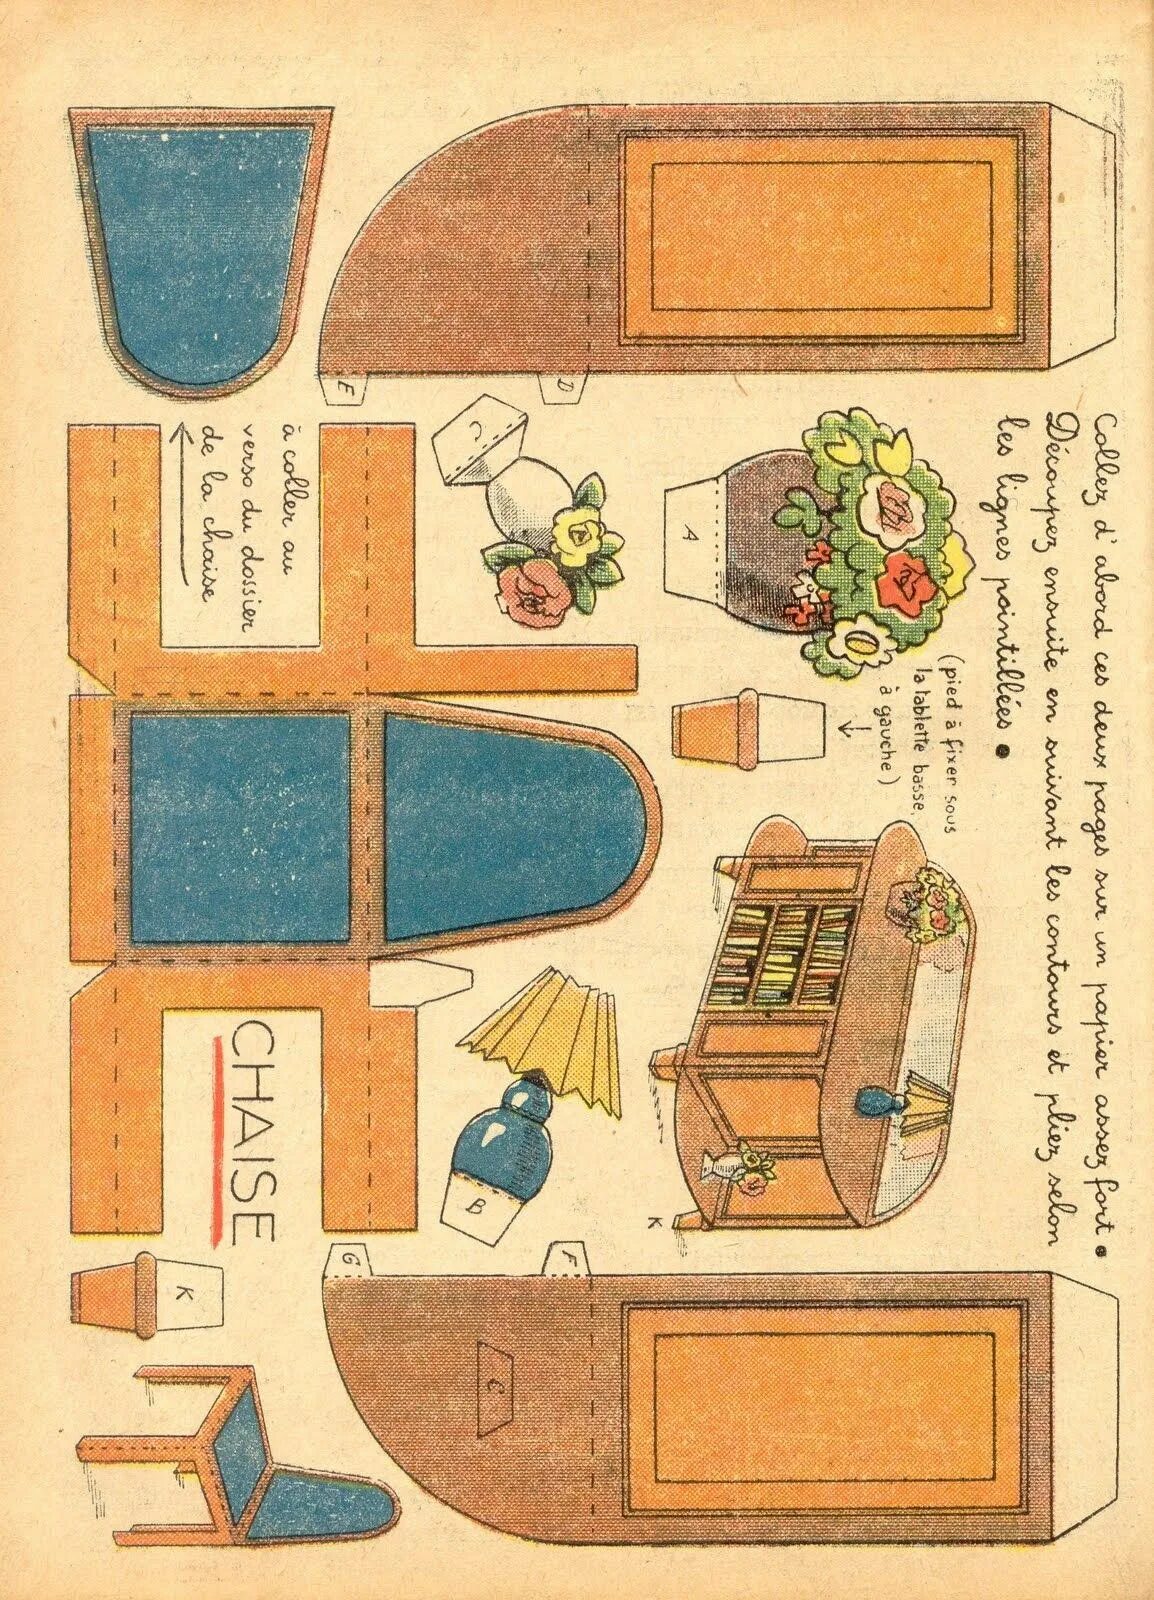 Collez d'abord ces deux pages sur un papier assez fort •
Découpez ensuite en suivant les contours et pliez selon
les lignes pointillées •
(pied à fixer sous
la tablette basse,
à gauche)
E
D
C
A
à coller au
verso du dossier
de la chaise
CHAISE
B
K
K
G
F
C